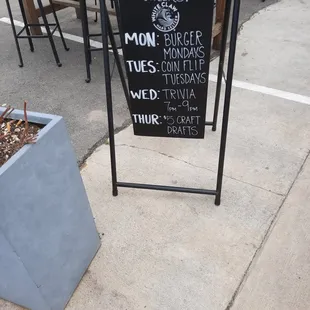 WHITE CLAW
HARD SELTZER
MON: BURGER
MONDAYS
TUES: COIN FLIP
TUESDAYS
WED: TRIVIA
7PM-9PM
THUR: $5 CRAFT
DRAFTS